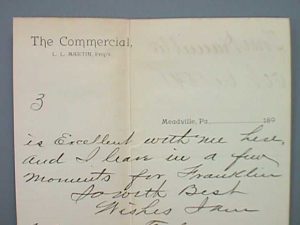 The Commercial,
L. L. MARTIN, Prop'r.
3
Meadville, Pa. 189
is Excellent with me here,
and I leave in a few
moments for Franklin
So with Best
Wishes I am